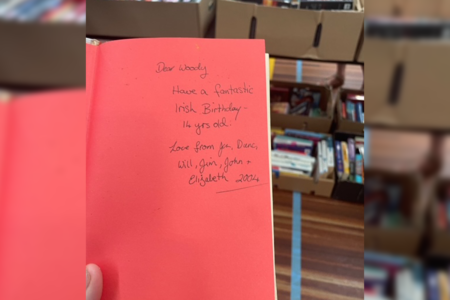 Dear Woody
Have a fantastic
Irish Birthday -
14 yrs old.
Love from Jen, Dani,
Will, Jim, John +
Elizabeth 2004